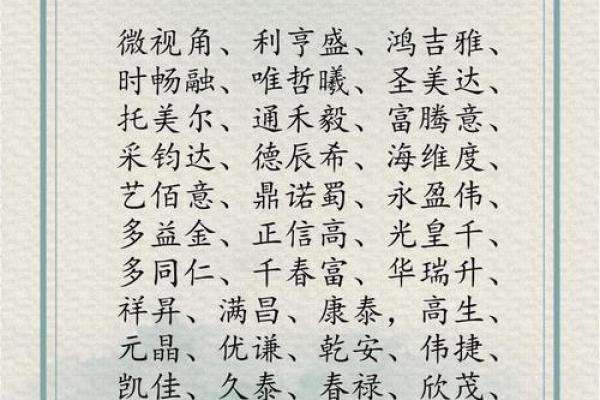 微视角、利亨盛、鸿吉雅、
时畅融、唯哲曦、圣美达、
托美尔、通禾毅、富腾意、
采钧达、德辰希、海维度、
艺佰意、鼎诺蜀、永盈伟、
多益金、正信高、光皇千、
多同仁、千春富、华瑞升、
祥昇、满昌、康泰，高生、
元晶、优谦、乾安、伟捷、
凯佳、久泰、春禄、欣茂、